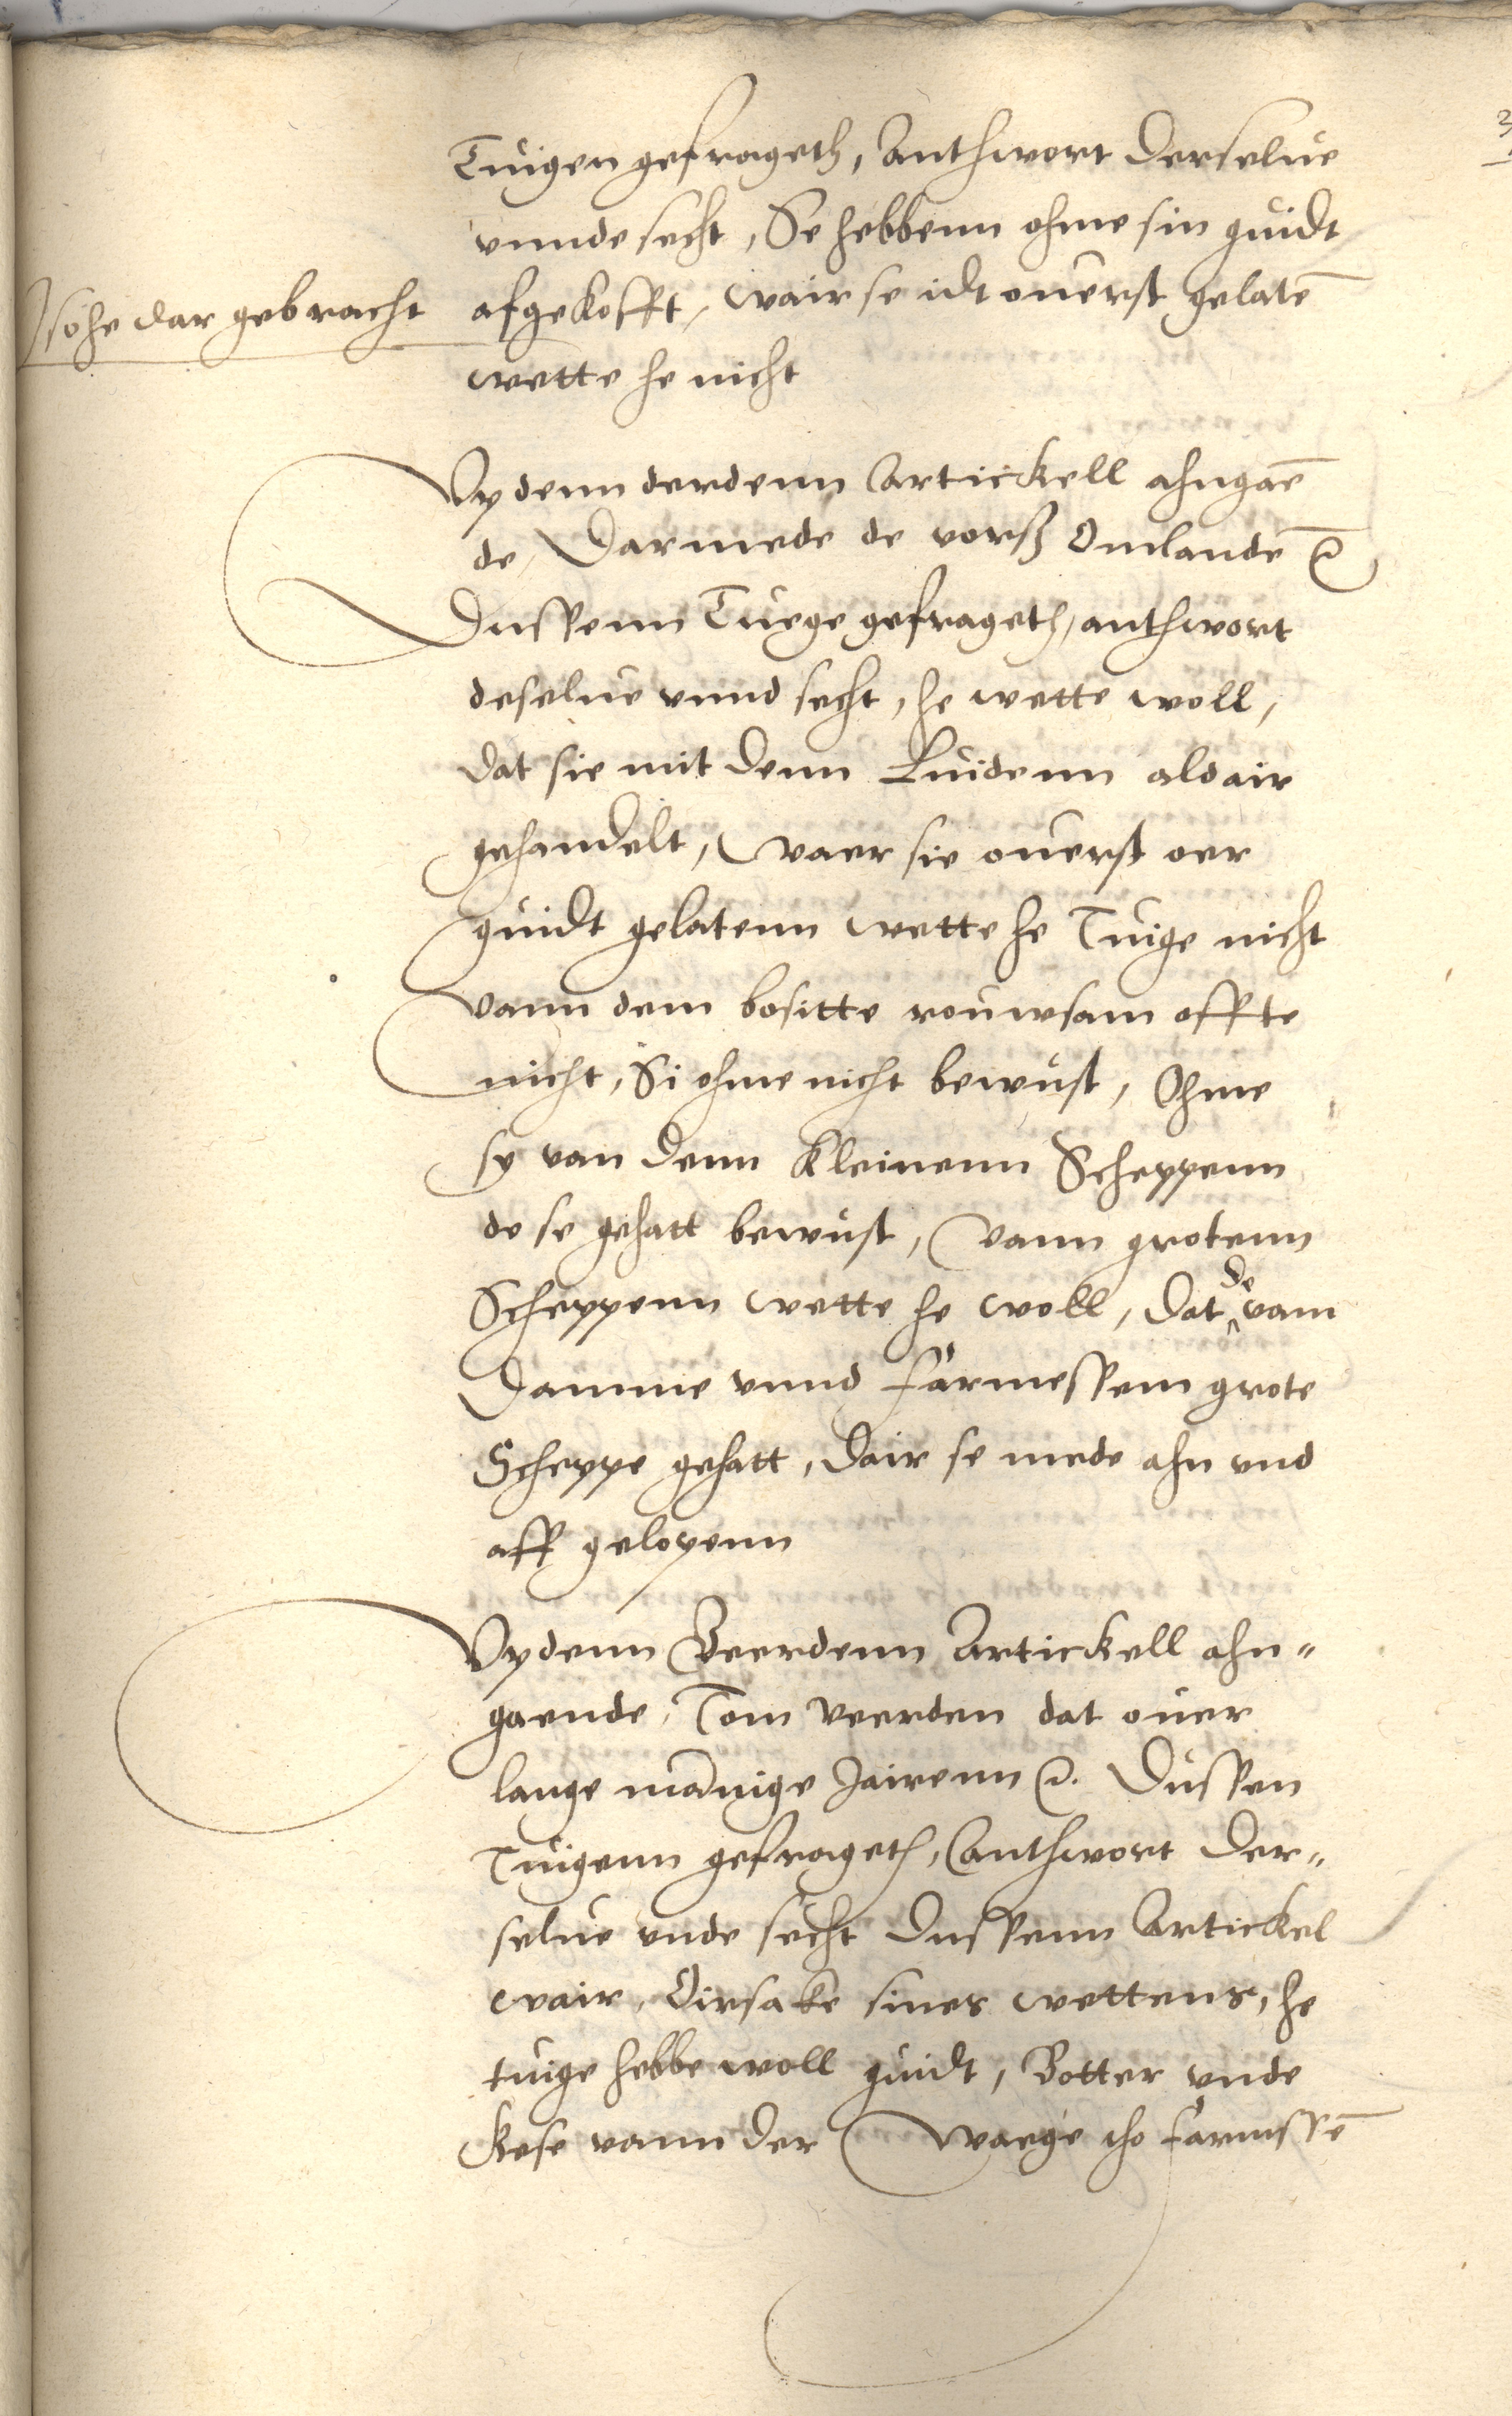 Tuigen gefrageth, Anthwort derselue
vnnde secht, Se hebbenn ohme sin guidt
so he dar gebracht
afgekofft, wair se idt ouerst gelatē
wette he nicht
Vp denn derdenn Artickell ahngaē
de, Darmede de vorß Omlande
Dussenn Tuege gefrageth, anthwort
deselue vnnd secht, he wette woll,
dat sie mit denn Luidenn aldair
gehandelt, waer sie ouerst oer
guidt gelatenn wette he Tuige nicht
vann dem besitte rouwsam offte
nicht, Si ohme nicht bewust, Ohme
sy van denn Kleinenn Scheppenn
de se gehatt bewust, vann grotenn
Scheppenn wette he woll, dat de vam
Damme vnnd farmessem grote
Scheppe gehatt, dair se mede ahn vnd
aff gelopenn
Vp denn Veerdenn Artickell ahn„
gaende, Tom Veerden dat ouer
lange mānige Jairenn ꝛc. Dussen
Tuigenn gefrageth, Anthwort der„
selue vnde secht dussenn Artickel
wair, Oirsake sines wettens, he
tuige hebbe woll guidt, Botter vnde
Kese vann der Waege tho farmssē